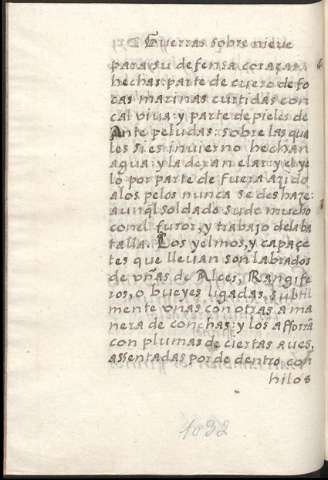 Guerras sobre nieue
para su defensa coraçar
hechas parte de cuero de fo
cas marinas curtidas con
cal viua: y parte de pieles de
Ante peludas: sobre las qua
les si es inuierno hechan
agua: y la dexan elar: y el ye
lo por parte de fuera asido
a los pelos nunca se deshaze:
aunq̃l soldado sude mucho
con el furor, y trabajo de la ba
talla. Los yelmos, y capaçe
tes que lleuan son labrados
de vñas de Alces, Rangife
ros, o bueyes ligadas subtil
mente vnas con otras a ma
nera de conchas: y los afforrã
con plumas de ciertas aues,
assentadas por de dentro con
hilos
1032